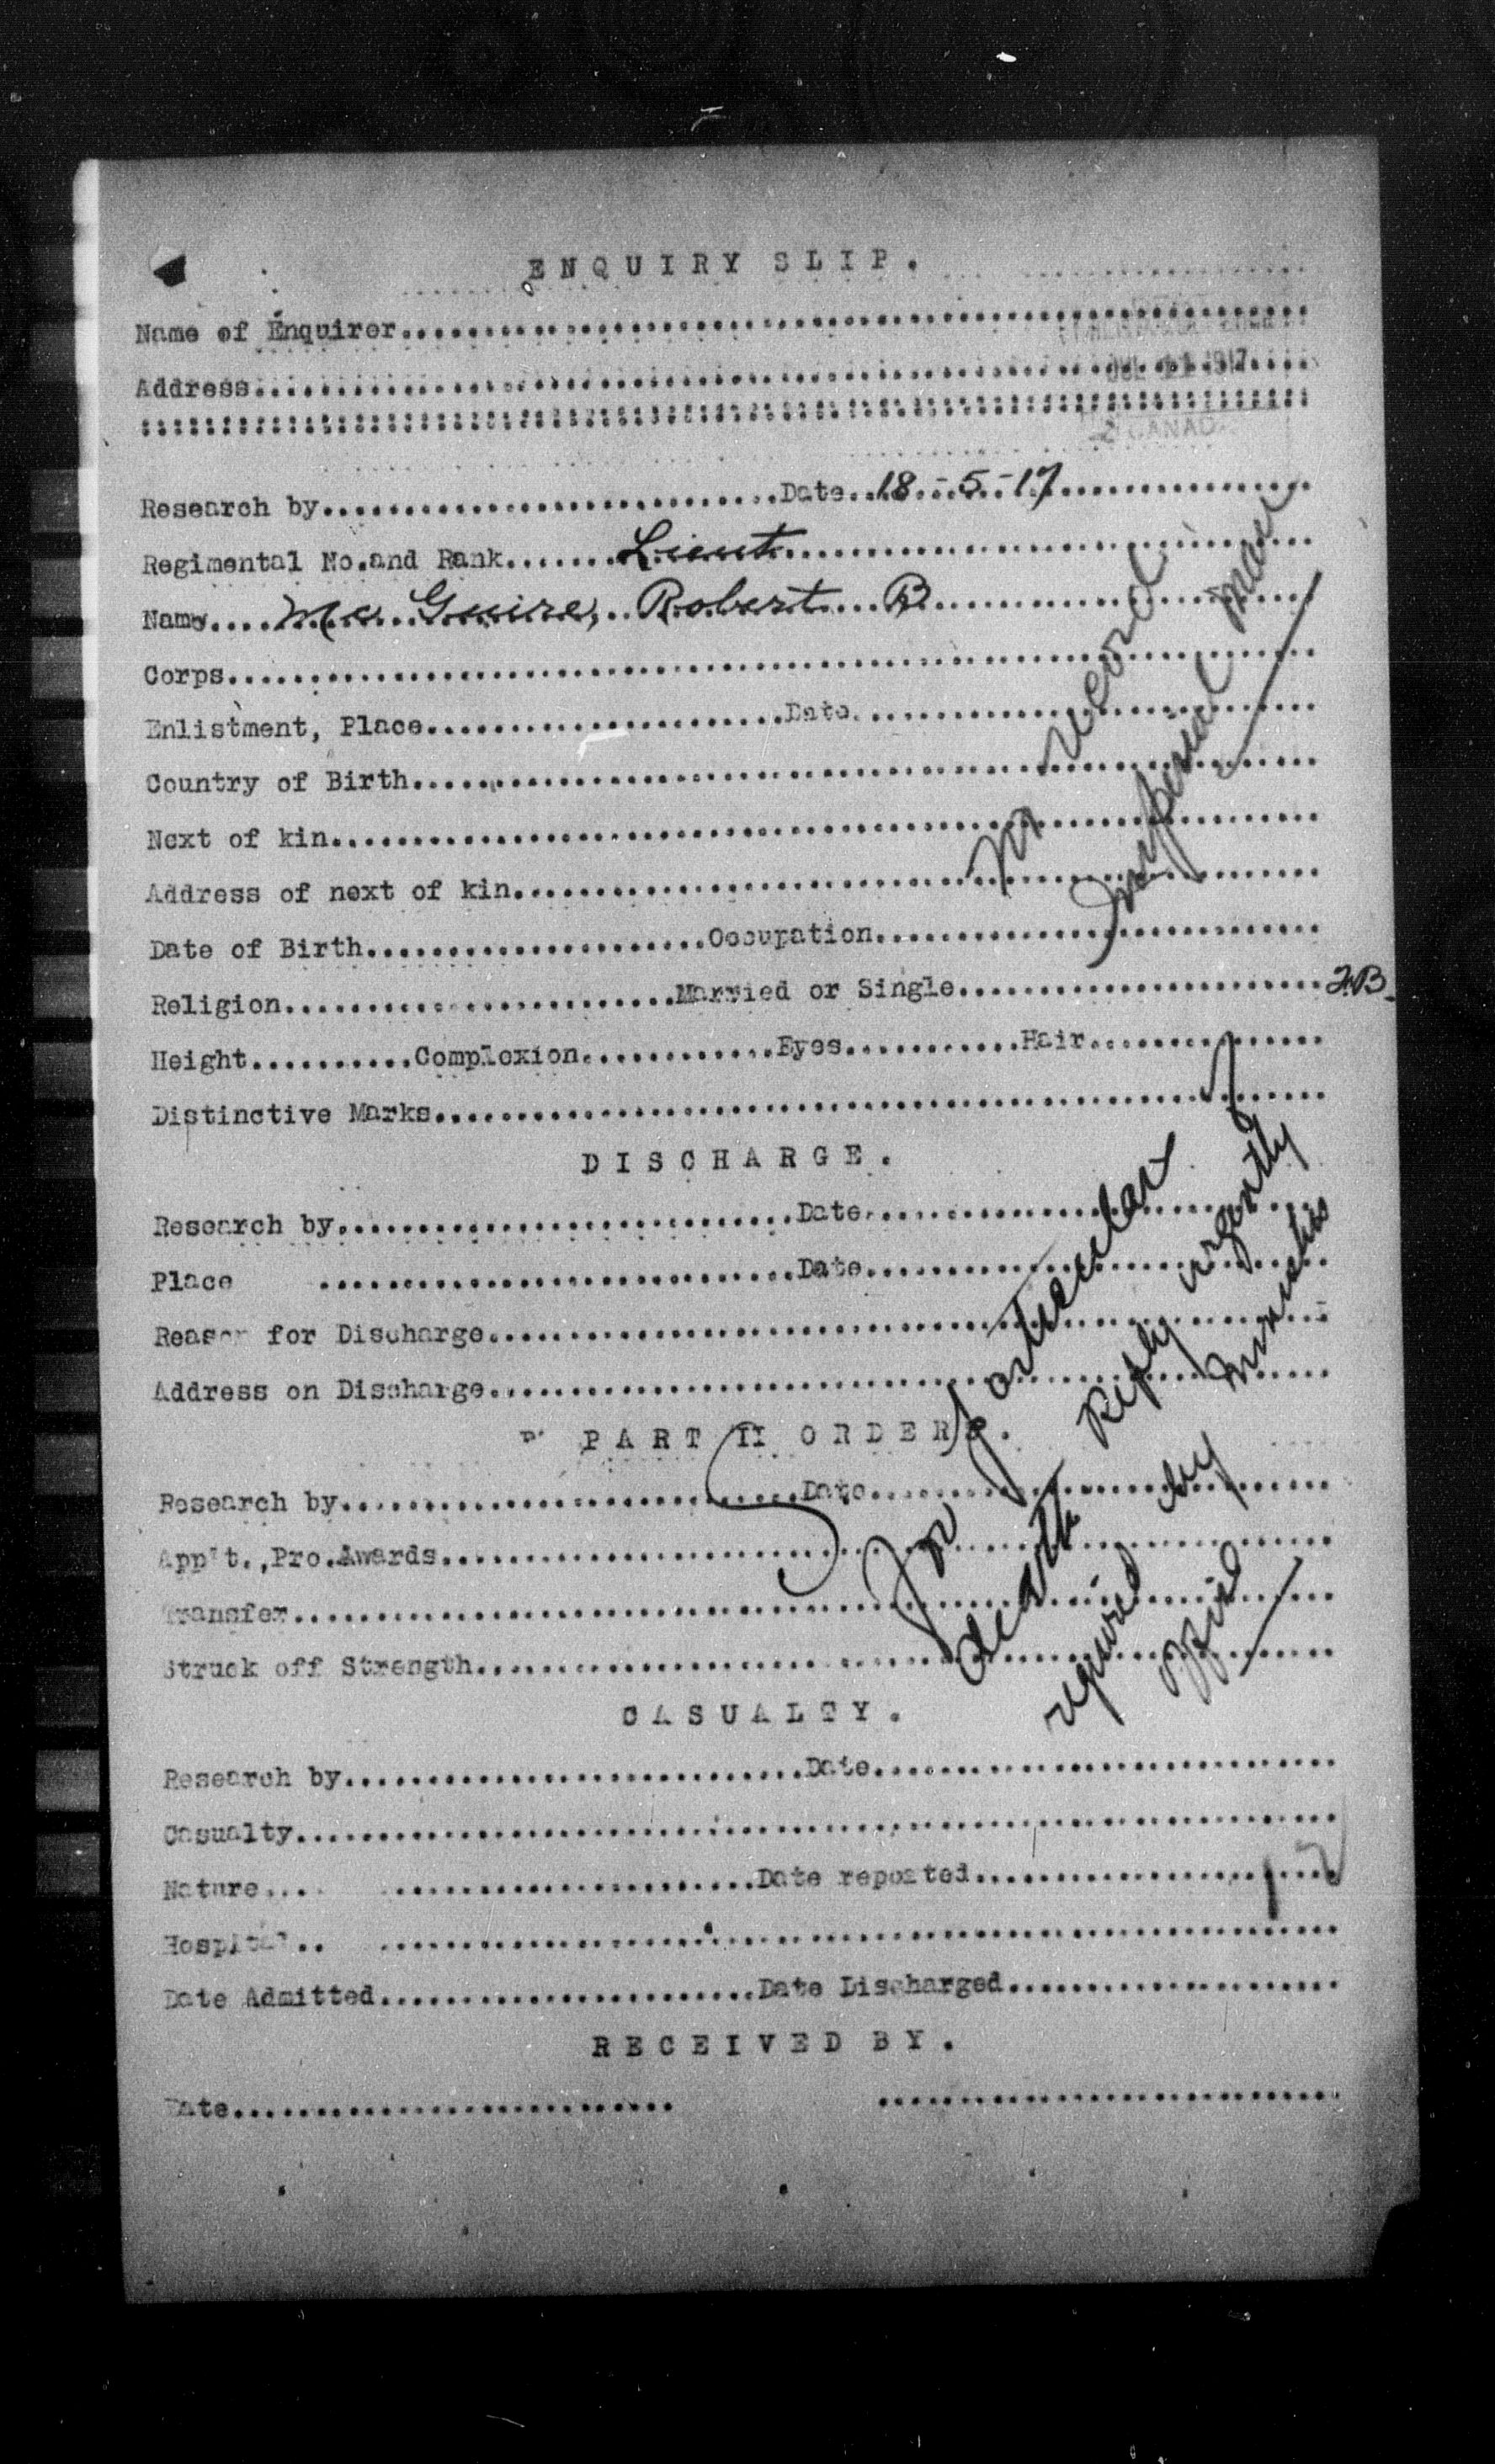 ENQUIRY SLIP.
Name of Enquirer
Address
JUL 11 1917
CANADA
Research by Date 18-5-17
Regimental No.and Rank Lieut
Name McGuire, Robert B
Corps
Enlistment, Place Date
Country of Birth
Next of kin
Address of next of kin
No record
Imperial man
Date of Birth Occupation
Religion Married or Single
Height Complexion Eyes Hair
Distinctive Marks
DISCHARGE.
Research by Date
Place Date
Reason for Discharge
Address on Discharge
PART II ORDERS.
Research by Date
App't.,Pro.Awards
Transfer
Struck off Strength
For particulars of
death Reply urgently
required by Minister's
office
CASUALTY.
Research by Date
Casualty
Nature Date reported
Hospital
Date Admitted Date Discharged
RECEIVED BY.
Date